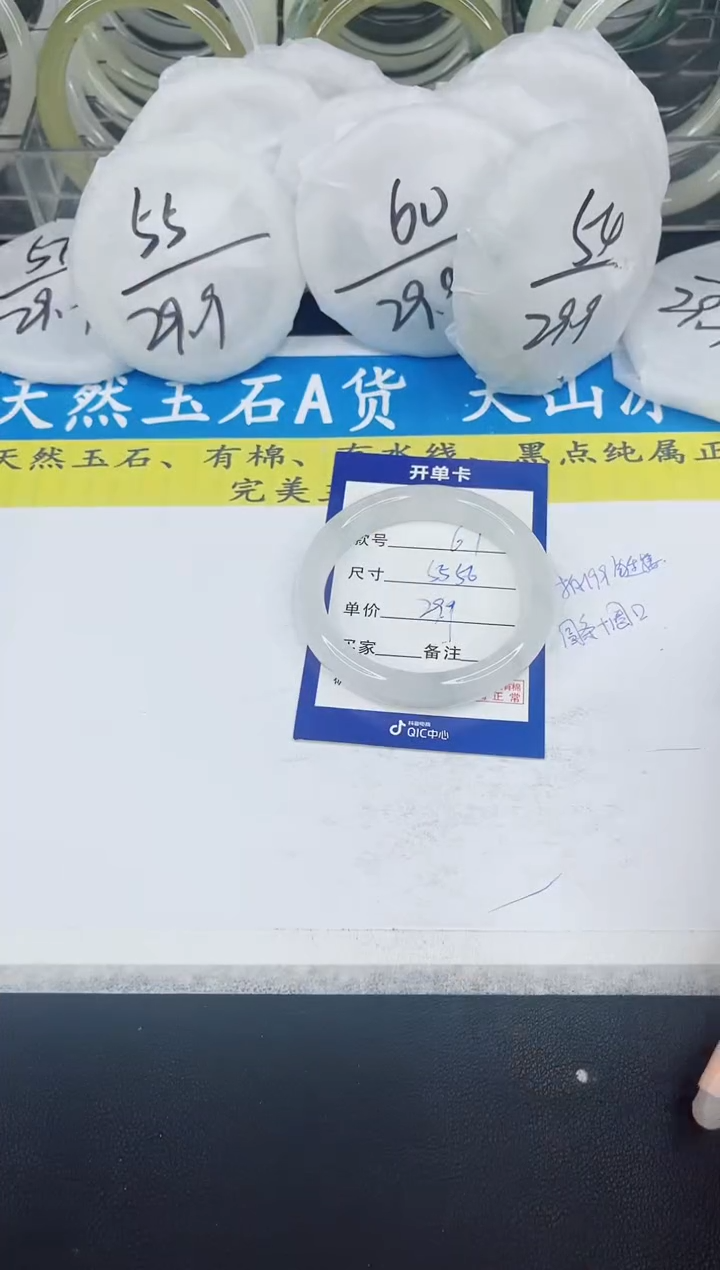 55
29.9
60
29.9
54
29.9
57
29.
天然玉石A货 天山
天然玉石、有棉、有水线、黑点纯属正
完美
开单卡
款号 61
尺寸 5556
单价 29.9
家 备注
有棉
正常
抖音电商
QIC中心